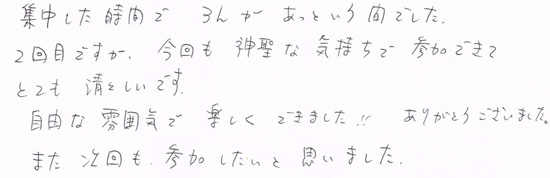 集中した時間で 3hが あっという間でした.
2回目ですが、今回も神聖な気持ちで参加できて
とても 清々しいです.
自由な雰囲気で 楽しくできました!! ありがとうございました。
また次回も、参加したいと思いました.